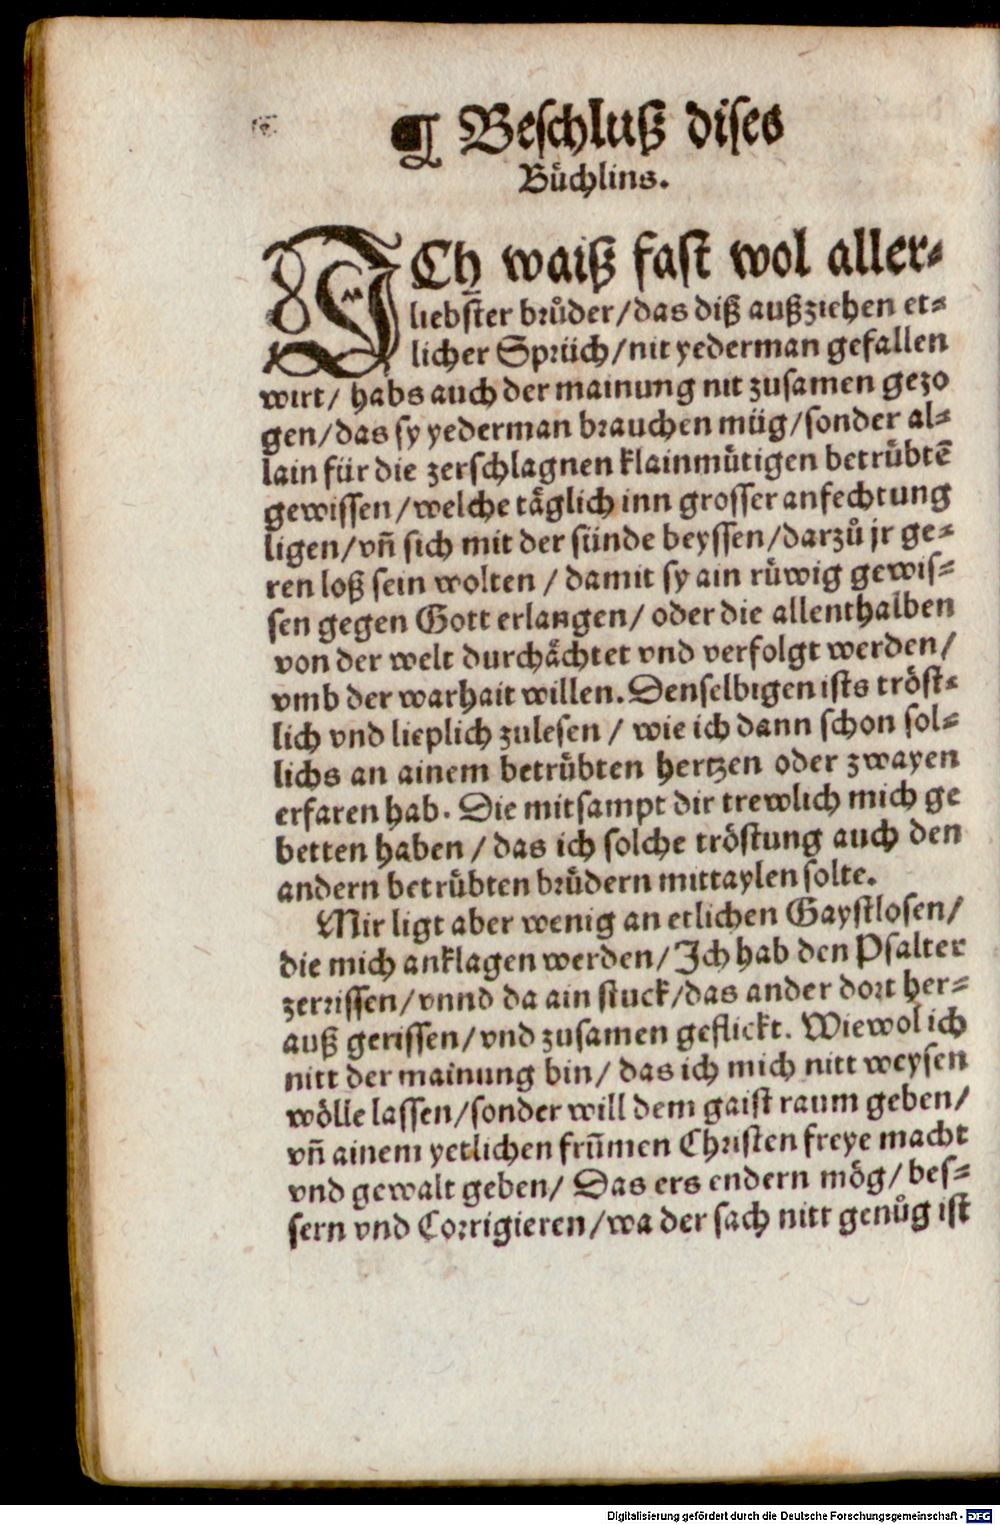 ¶ Beſchluſz diſes
Buͤchlins.
ICh waiſz faſt wol aller⸗
liebſter bruͤder/das diſz auſzziehen et⸗
licher Spruͤch/nit yederman gefallen
wirt/ habs auch der mainung nit zuſamen gezo
gen/das ſy yederman brauchen muͤg/ſonder al⸗
lain fuͤr die zerſchlagnen klainmuͤtigen betruͤbtē
gewiſſen/welche taͤglich inn groſſer anfechtung
ligen/vn̄ ſich mit der ſünde beyſſen/darzuͦ jr ge⸗
ren loſz ſein wolten / damit ſy ain ruͤwig gewiſ⸗
ſen gegen Gott erlangen/ oder die allenthalben
von der welt durchaͤchtet vnd verfolgt werden/
vmb der warhait willen. Denſelbigen iſts troͤſt⸗
lich vnd lieplich zuleſen / wie ich dann ſchon ſol⸗
lichs an ainem betruͤbten hertzen oder zwayen
erfaren hab. Die mitſampt dir trewlich mich ge
betten haben / das ich ſolche troͤſtung auch den
andern betruͤbten bruͤdern mittaylen ſolte.
Mir ligt aber wenig an etlichen Gayſtloſen/
die mich anklagen werden/ Ich hab den Pſalter
zerriſſen/vnnd da ain ſtuck/das ander dort her⸗
auſz geriſſen/vnd zuſamen geflickt. Wiewol ich
nitt der mainung bin/ das ich mich nitt weyſen
woͤlle laſſen/ſonder will dem gaiſt raum geben/
vn̄ ainem yetlichen frūmen Chriſten freye macht
vnd gewalt geben/ Das ers endern moͤg/ beſ⸗
ſern vnd Corrigieren/wa der ſach nitt genuͦg iſt
Digitalisierung gefördert durch die Deutsche Forschungsgemeinschaft - DFG